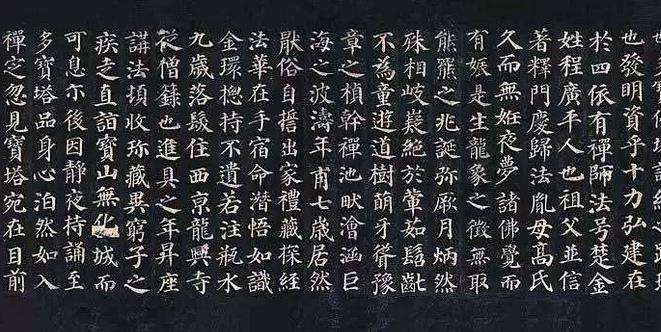 也發明資乎十力弘建在
於四依有禪師法號楚金
姓程廣平人也祖父並信
著釋門慶歸法胤母髙氏
久而無妊夜夢諸佛覺而
有娠是生龍象之徵無取
熊羆之兆誕弥厥月炳然
殊相岐嶷絕於葷茹髫齔
不為童遊道樹萌牙聳豫
章之楨幹禪池畎澮涵巨
海之波濤年甫七歲居然
猒俗自誓出家禮藏探經
法華在手宿命潛悟如識
金環揔持不遺若注瓶水
九歲落髮住西京龍興寺
從僧籙也進具之年昇座
講法頓收珎藏異窮子之
疾走直詣寶山無化城而
可息尒後因靜夜持誦至
多寶塔品身心泊然如入
禪定忽見寶塔宛在目前